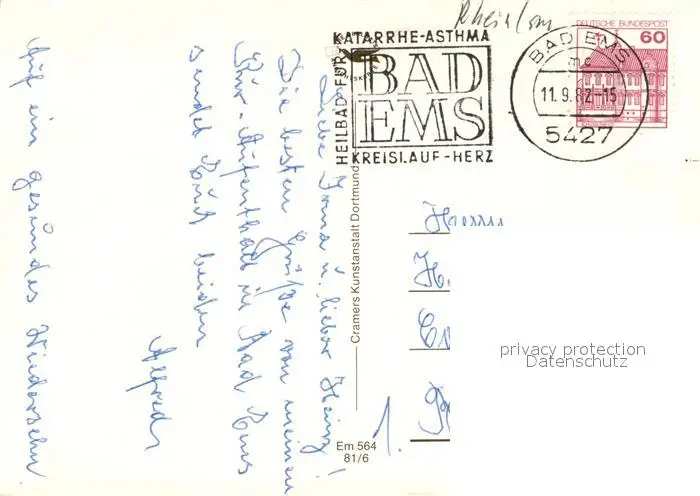 Rheinlan
KATARRHE-ASTHMA
HEILBAD FÜR
BAD
EMS
KREISLAUF-HERZ
DEUTSCHE BUNDESPOST
60
BAD EMS
mc
11.9.82-15
5427
Liebe Irma u. lieber Heinz!
Die besten Grüße von meinem
Kur-Aufenthalt in Bad Ems
sendet Euch beiden
Alfred
Auf ein gesundes Wiedersehn
Cramers Kunstanstalt Dortmund
Em 564
81/6
H.
1.
privacy protection
Datenschutz